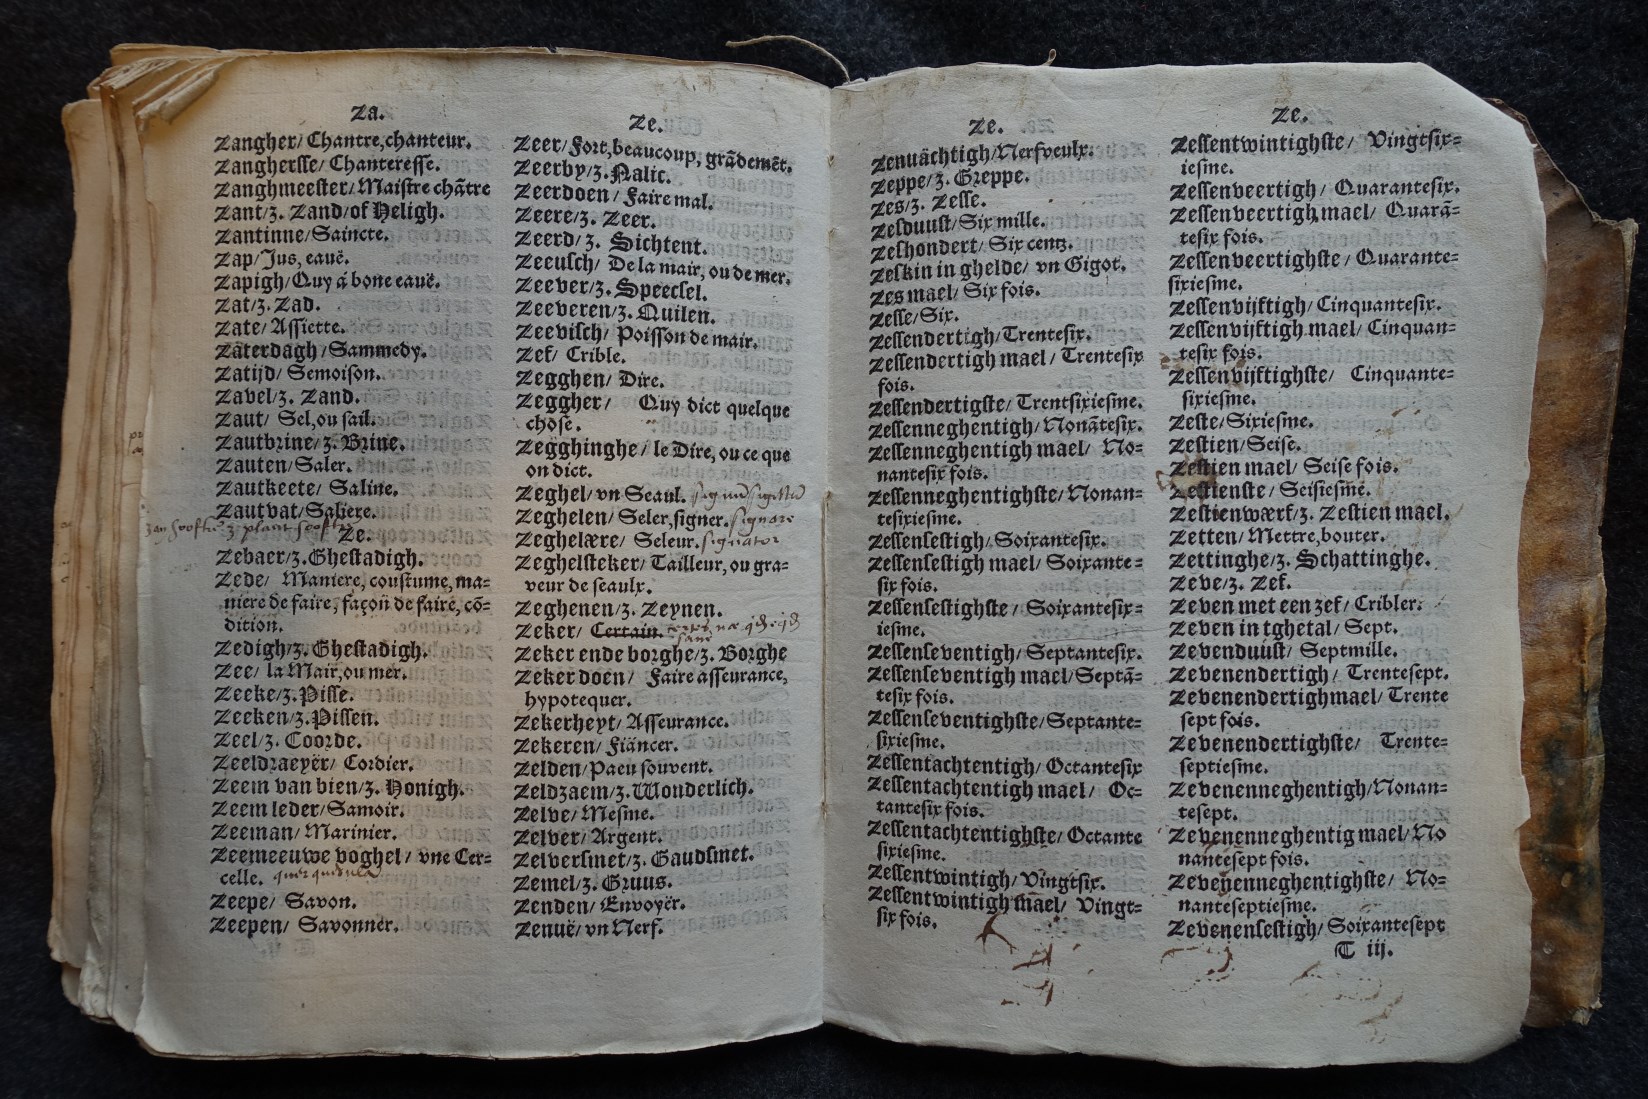 Za.
Zangher/ Chantre, chanteur.
Zanghersse/ Chanteresse.
Zanghmeester/ Maistre chãtre
Zant/ z. Zand/of Heligh.
Zantinne/ Saincte.
Zap/ Jus, eauë.
Zapigh/ Quy á bone eauë.
Zat/ z. Zad.
Zate/ Assiette.
Zaterdagh/ Sammedy.
Zatijd/ Semoison.
Zavel/ z. Zand.
Zaut/ Sel, ou sail.
Zautbrine/ z. Brine.
Zauten/ Saler.
Zautkeete/ Saline.
Zautvat/ Saliere.
Ze.
Zebaer/ z. Ghestadigh.
Zede/ Maniere, coustume, ma=
niere de faire, façon de faire, cõ=
dition.
Zedigh/ z. Ghestadigh.
Zee/ la Mair, ou mer.
Zeeke/ z. Pisse.
Zeeken/ z. Pissen.
Zeel/ z. Coorde.
Zeeldraeyer/ Cordier.
Zeem van bien/ z. Honigh.
Zeem leder/ Samoir.
Zeeman/ Marinier.
Zeemeeuwe voghel/ vne Cer=
celle. querquedula
Zeepe/ Savon.
Zeepen/ Savonner.
Ze.
Zeer/ Fort, beaucoup, grãdemẽt.
Zeerby/ z. Nalic.
Zeerdoen/ Faire mal.
Zeere/ z. Zeer.
Zeerd/ z. Sichtent.
Zeeusch/ De la mair, ou de mer.
Zeever/ z. Speecsel.
Zeeveren/ z. Quilen.
Zeevisch/ Poisson de mair.
Zef/ Crible.
Zegghen/ Dire.
Zeggher/ Quy dict quelque
chose.
Zegghinghe/ le Dire, ou ce que
on dict.
Zeghel/ vn Seaul.
Zeghelen/ Seler, signer. signare
Zeghelære/ Seleur. signator
Zeghelsteker/ Tailleur, ou gra=
veur de seaulx.
Zeghenen/ z. Zeynen.
Zeker/ Certain.
Zeker ende borghe/ z. Borghe
Zeker doen/ Faire asseurance,
hypotequer.
Zekerheyt/ Asseurance.
Zekeren/ Fiäncer.
Zelden/ Paeu souvent.
Zeldzaem/ z. Wonderlich.
Zelve/ Mesme.
Zelver/ Argent.
Zelversmet/ z. Gaudsmet.
Zemel/ z. Gruus.
Zenden/ Envoyër.
Zenuë/ vn Nerf.
Ze.
Zenuächtigh/ Nerfveulx.
Zeppe/ z. Greppe.
Zes/ z. Zesse.
Zesduust/ Six mille.
Zeshondert/ Six centz.
Zeskin in ghelde/ vn Gigot.
Zes mael/ Six fois.
Zesse/ Six.
Zessendertigh/ Trentesix.
Zessendertigh mael/ Trentesix
fois.
Zessendertigste/ Trentsixiesme.
Zessenneghentigh/ Nonãtesix.
Zessenneghentigh mael/ No=
nantesix fois.
Zessenneghentighste/ Nonan=
tesixiesme.
Zessensestigh/ Soixantesix.
Zessensestigh mael/ Soixante=
six fois.
Zessensestighste/ Soixantesix=
iesme.
Zessenseventigh/ Septantesix.
Zessenseventigh mael/ Septã=
tesix fois.
Zessenseventighste/ Septante=
sixiesme.
Zessentachtentigh/ Octantesix
Zessentachtentigh mael/ Oc=
tantesix fois.
Zessentachtentighste/ Octante
sixiesme.
Zessentwintigh/ Vingtsix.
Zessentwintigh mael/ Vingt=
six fois.
Ze.
Zessentwintighste/ Vingtsix=
iesme.
Zessenveertigh/ Quarantesix.
Zessenveertigh mael/ Quarã=
tesix fois.
Zessenveertighste/ Quarante=
sixiesme.
Zessenvijftigh/ Cinquantesix.
Zessenvijftigh mael/ Cinquan=
tesix fois.
Zessenvijftighste/ Cinquante=
sixiesme.
Zeste/ Sixiesme.
Zestien/ Seise.
Zestien mael/ Seise fois.
Zestienste/ Seisiesme.
Zestienwærf/ z. Zestien mael.
Zetten/ Mettre, bouter.
Zettinghe/ z. Schattinghe.
Zeve/ z. Zef.
Zeven met een zef/ Cribler.
Zeven in tghetal/ Sept.
Zevenduust/ Septmille.
Zevenendertigh/ Trentesept.
Zevenendertighmael/ Trente
sept fois.
Zevenendertighste/ Trente=
septiesme.
Zevenenneghentigh/ Nonan=
tesept.
Zevenenneghentig mael/ No
nantesept fois.
Zevenenneghentighste/ No=
nanteseptiesme.
Zevenensestigh/ Soixantesept
T iij.